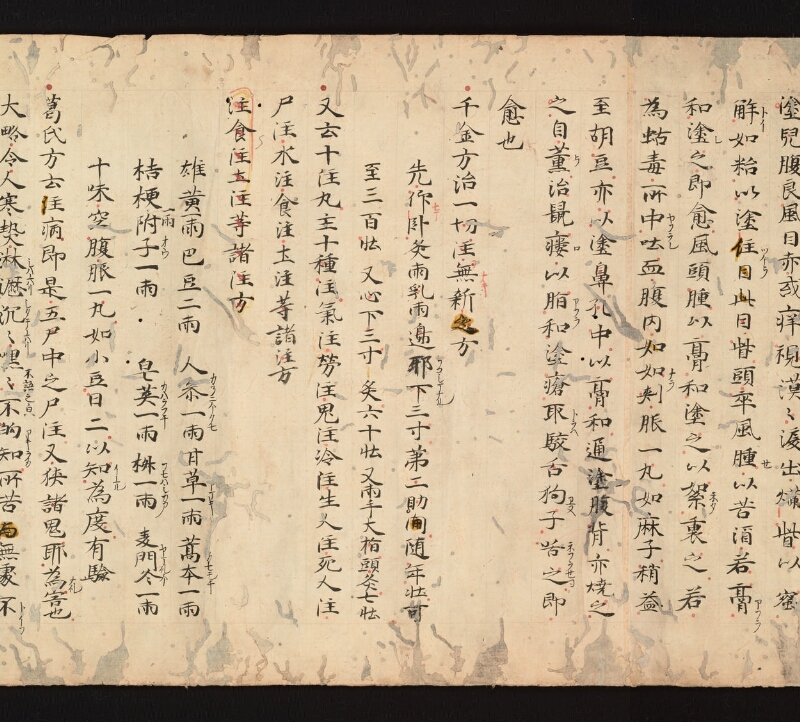 塗兒腹良風目亦或痒視漠〻淚出爛眥以蜜
解如粘以塗住目眥目眥頭卒風腫以苦酒若膏
和塗之即愈風頭腫以膏和塗之以絮裹之若
為蛄毒所中吐血腹内如如刾服一丸如麻子稍益
至胡豆亦以塗鼻孔中以膏和通塗腹背亦燒之
之自薫治鼠瘻以脂和塗瘡取駮舌狗子咶之即
愈也
千金方治一切注無新方
先仰卧灸兩乳兩邊耶下三寸第二肋間随年壮可
至三百壮 又心下三寸灸六十壮又兩手大栢頭灸七壮
又云十注丸主十種注氣注勞注鬼注冷注生人注死人注
尸注水注食注土注等諸注方
注食注土注等諸注方
雄黄兩巴豆二兩 人参一兩甘草一兩藁本一兩
桔梗附子一兩 皂莢一兩 椒一兩 麦門冬一兩
十味空腹服一丸如小豆日二以知為度有驗
葛氏方云注病即是五尸中之尸注又挾諸鬼耶為害也
大略令人寒熱淋瀝沉〻嘿〻不的知所苦 無處不